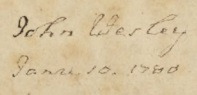 John Wesley
Jany 10. 1780